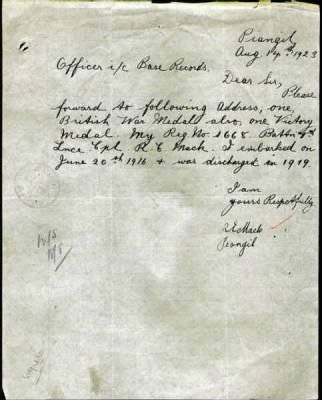 Piangil
Aug 14th 1923
Officer i/c Base Records.
Dear Sir,
Please
forward to following Address, one,
British War Medal also, one Victory
Medal. My Reg No 1668. Battn
Lnce Cpl. R. E Mack. I embarked on
June 20th 1916 & was discharged in 1919.
I am
yours Respectfully
R E Mack
Piangil